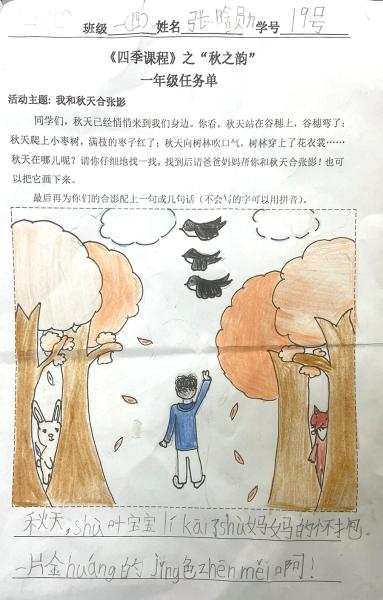 班级 一(19) 姓名 张晗勋 学号 19号
《四季课程》之“秋之韵”
一年级任务单
活动主题: 我和秋天合张影
同学们，秋天已经悄悄来到我们身边。你看，秋天站在谷穗上，谷穗弯了；
秋天爬上小枣树，满枝的枣子红了；秋天向树林吹口气，树林穿上了花衣裳……
秋天在哪儿呢？请你仔细地找一找，找到后请爸爸妈妈帮你和秋天合张影！也可
以把它画下来。
最后再为你们的合影配上一句或几句话（不会写的字可以用拼音）。
秋天，shù叶宝宝lí kāi了shù妈妈的怀抱。
一片金huáng的jǐng色zhēn měi啊！